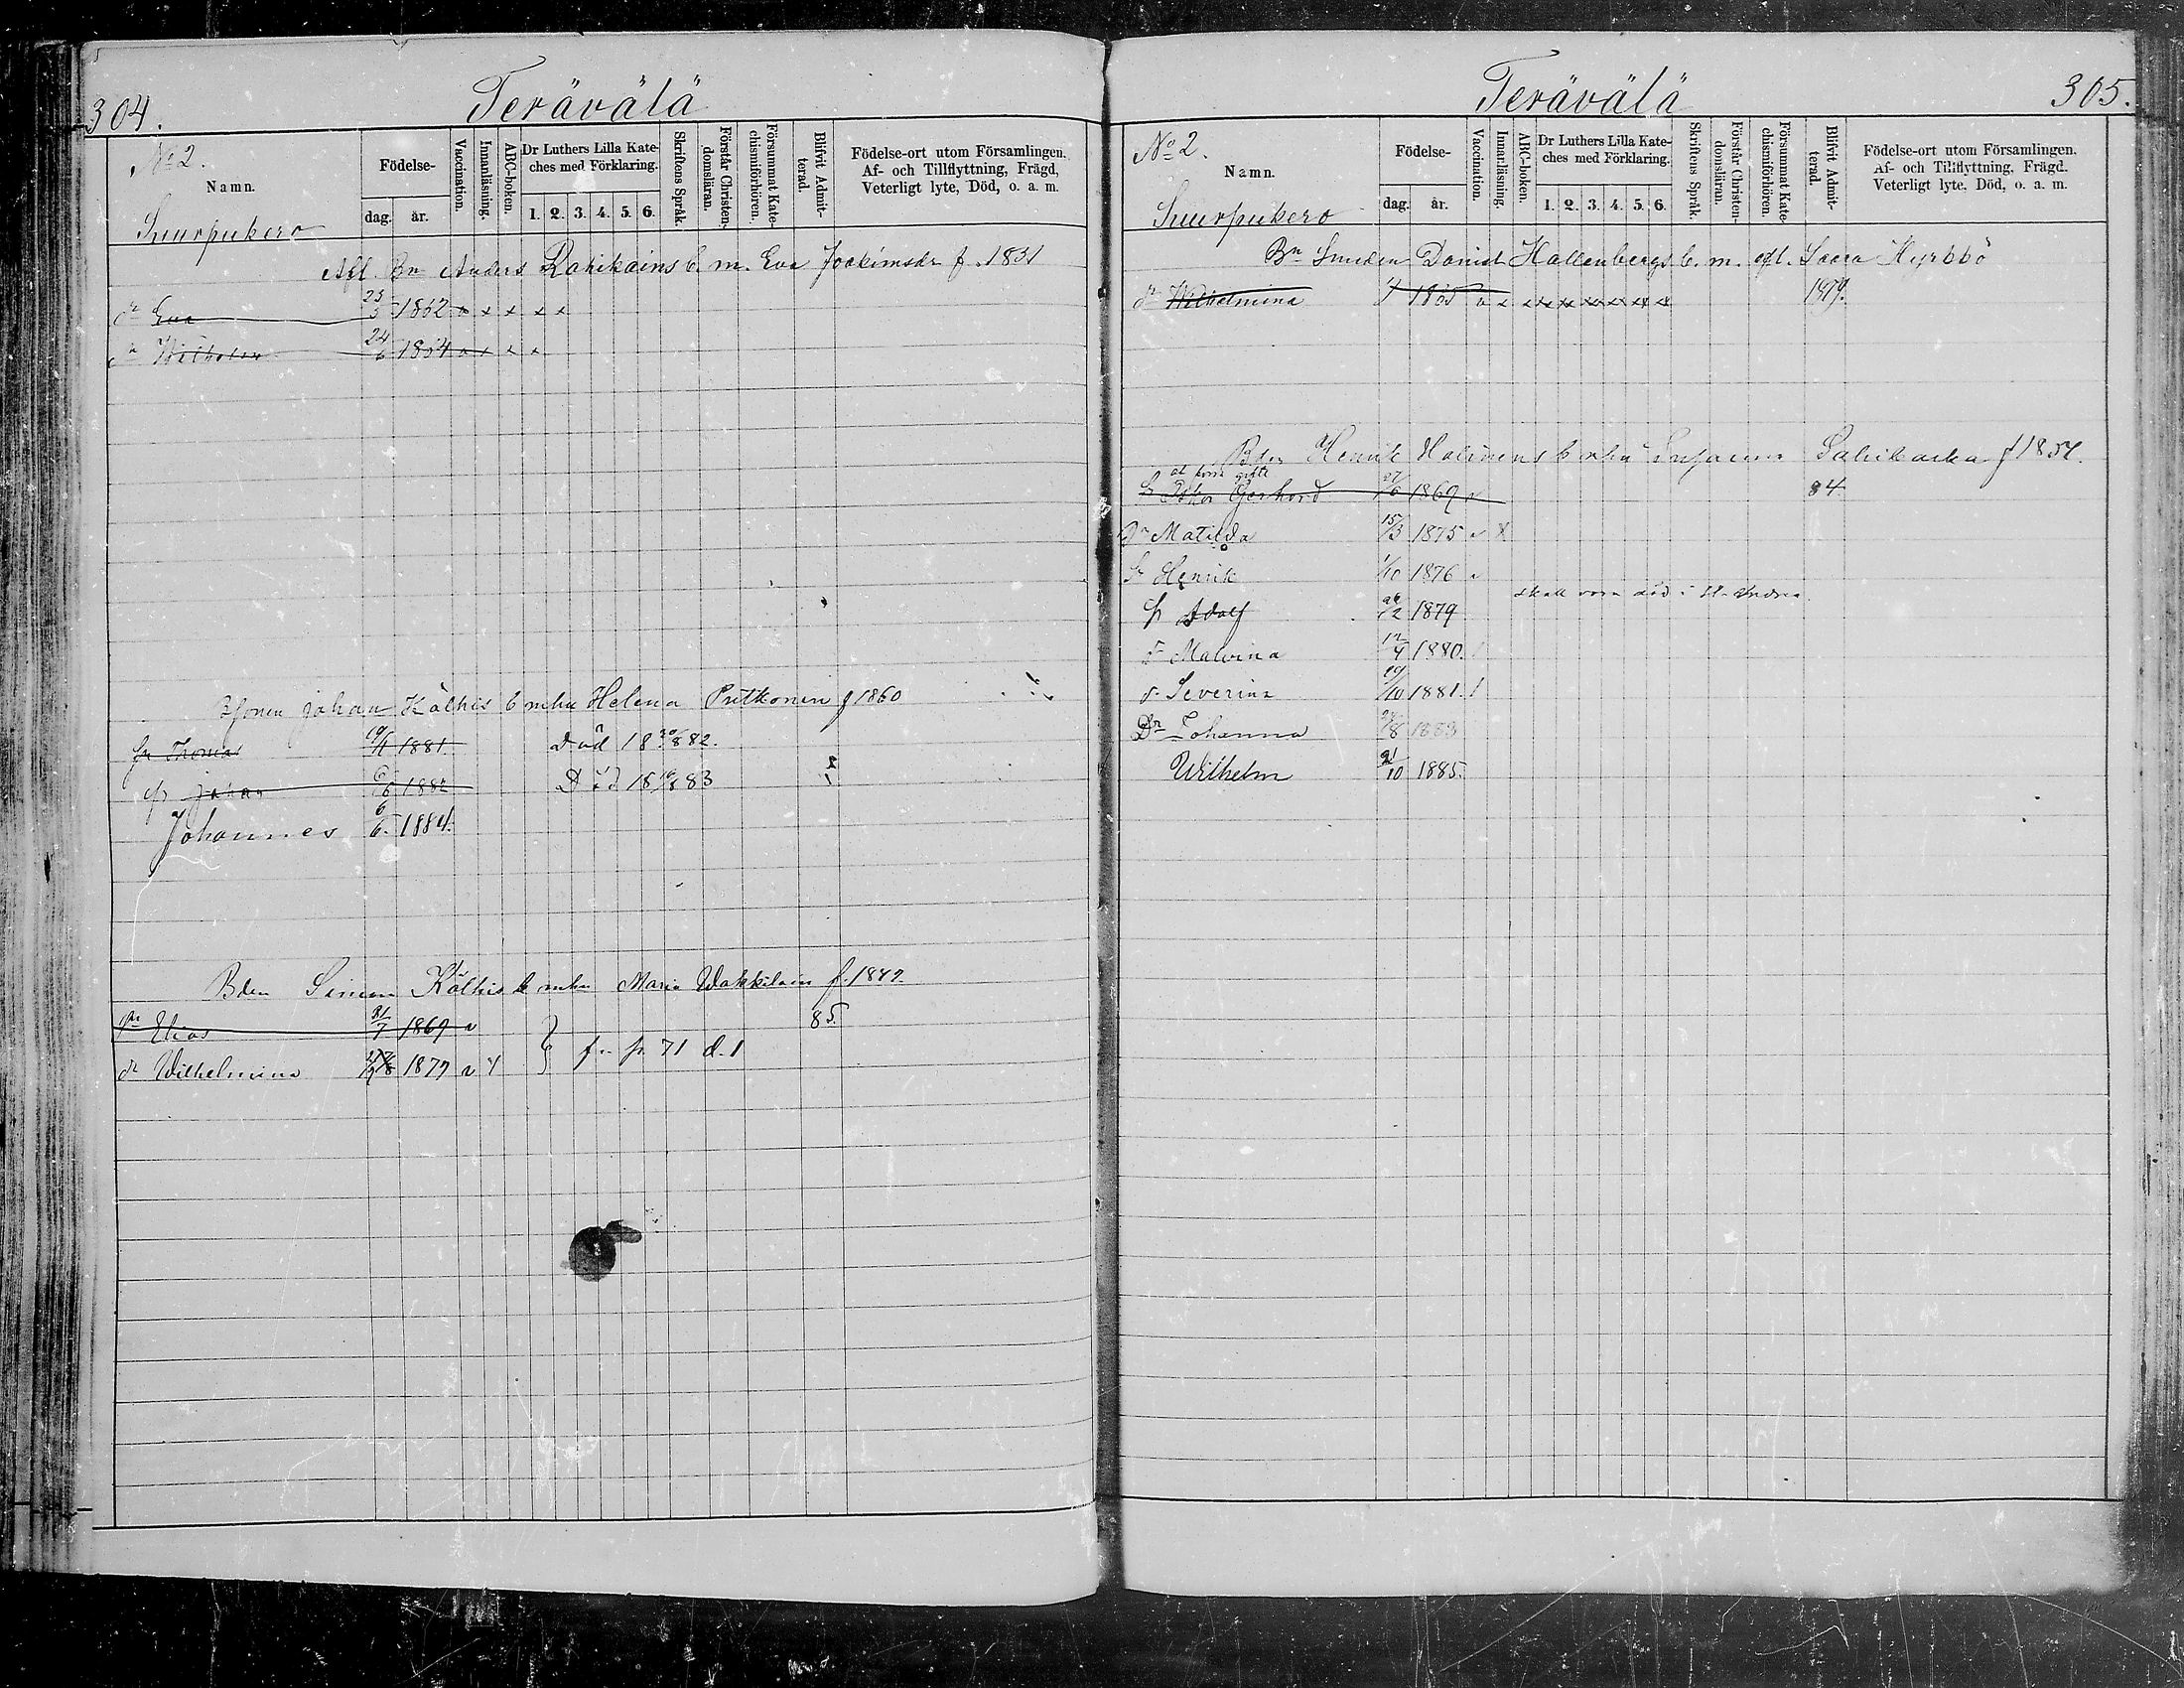 304.
Terävälä
No 2.
Namn.
Suurpukero
Födelse-
dag. år.
Vaccination.
Innanläsning.
ABC-boken.
Dr Luthers Lilla Kate-
ches med Förklaring.
1. 2. 3. 4. 5. 6.
Skriftens Språk.
Förstår Christen-
domsläran.
Försummat Kate-
chismiförhören.
Blifvit Admit-
terad.
Födelse-ort utom Församlingen.
Af- och Tillflyttning, Frägd,
Veterligt lyte, Död, o. a. m.
Afl. Bn Anders Rahikains b. m. Eva Joakimsdr f. 1831
dr Eva 23/5 1862 x x x x x
24/6 1864 x x x x
Johan Kälhis b mhu Helena Putkonen f 1860
sn Thomas 19/1 1881. Död 18 20/8 82.
sn Johan 6/6 1882 Död 18 83
Johannes 6/6. 1884.
Bden Simon Kälhis b mhu Maria Wakkilain f. 1842.
sn Elias 31/7 1869 v 85.
dr Wilhelmina 1879 v x } fr. p. 71 d. 1
305.
Terävälä
No 2.
Namn.
Suurpukero
Födelse-
dag. år.
Vaccination.
Innanläsning.
ABC-boken.
Dr Luthers Lilla Kate-
ches med Förklaring.
1. 2. 3. 4. 5. 6.
Skriftens Språk.
Förstår Christen-
domsläran.
Försummat Kate-
chismiförhören.
Blifvit Admit-
terad.
Födelse-ort utom Församlingen.
Af- och Tillflyttning, Frägd.
Veterligt lyte, Död, o. a. m.
Bn Smeden Daniel Hallenbergs b. m. afl. Saara Hyrbbö
dr Wilhelmina 1865 v x x x x x x x x 1879.
Bden Henrik Halinens b mhu Susanna f 1854.
af förra gifte
sn Oskar Gerhard 1869 v 84
Dr Matilda 15/3 1875 v x
sn Henrik 1/10 1876 v
skall vara död i St. Andrea.
sn Adolf 26/2 1879
dr Malvina 12/4 1880. /
dr Severina 19/10 1881. /
Dr Johanna 1883
Wilhelm 21/10 1885.